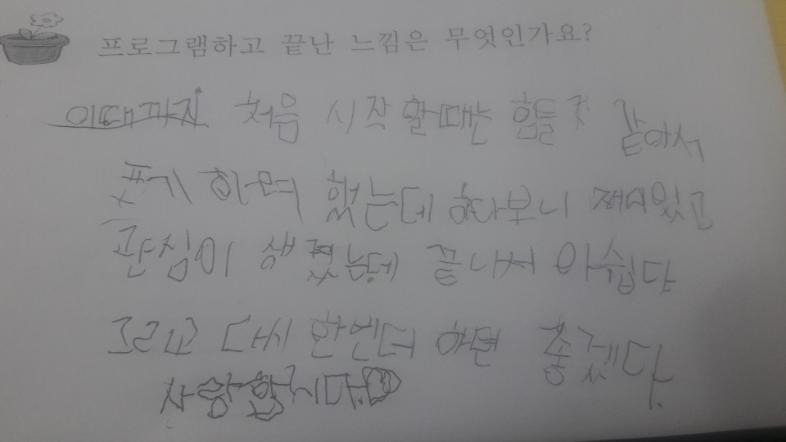 프로그램하고 끝난 느낌은 무엇인가요?
이때까지 처음 시작 할때는 힘들것 같아서
포기 하려 했는데 하다보니 재미있고
관심이 생겼는데 끝나서 아쉽다
그리고 다시 한번더 하면 좋겠다.
사랑합니다.